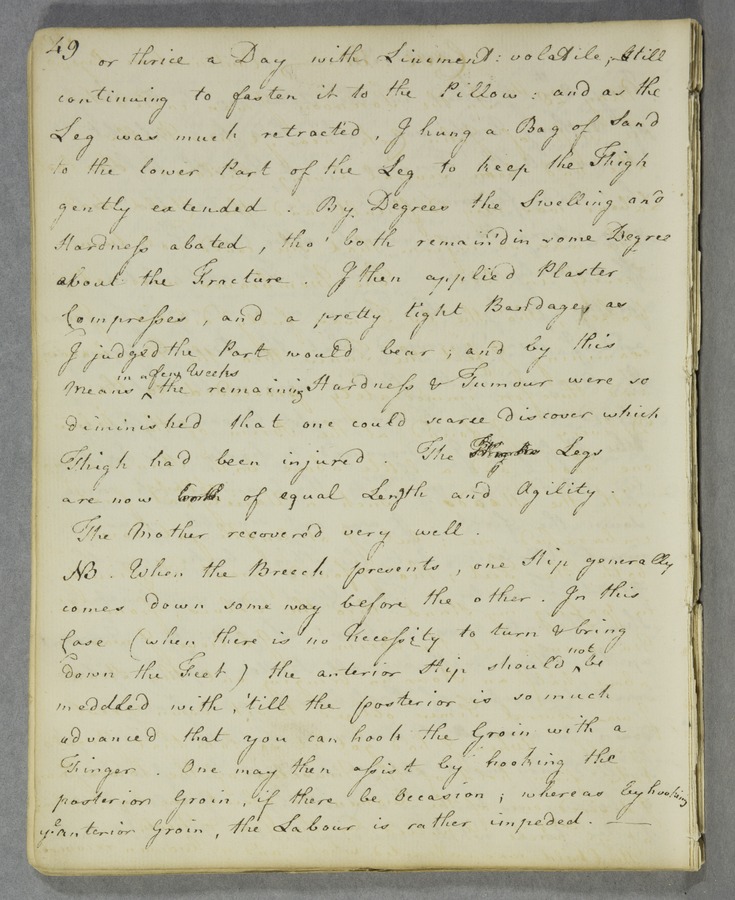 49
or thrice a Day with Liniment: volatile; still
continuing to fasten it to the Pillow: and as the
Leg was much retracted, I hung a Bag of Sand
to the lower Part of the Leg to keep the Thigh
gently extended. By Degrees the Swelling and
Hardness abated, tho' both remain'd in some Degree
about the Fracture. I then applied Plaster
Compresses, and a pretty tight Bandage, as
I judged the Part would bear; and by this
in a few Weeks
Means ‸ the remaining Hardness & Tumour were so
diminished that one could scarce discover which
Thigh had been injured. The Legs
are now of equal Length and Agility.
The Mother recovered very well.
NB. When the Breech presents, one Hip generally
comes down some way before the other. In this
Case (when there is no Necessity to turn & bring
down the Feet) the anterior Hip should ‸ not be
meddled with, 'till the posterior is so much
advanced that you can hook the Groin with a
Finger. One may then assist by hooking the
posterior Groin, if there be Occasion; whereas by hooking
ye anterior Groin, the Labour is rather impeded. —